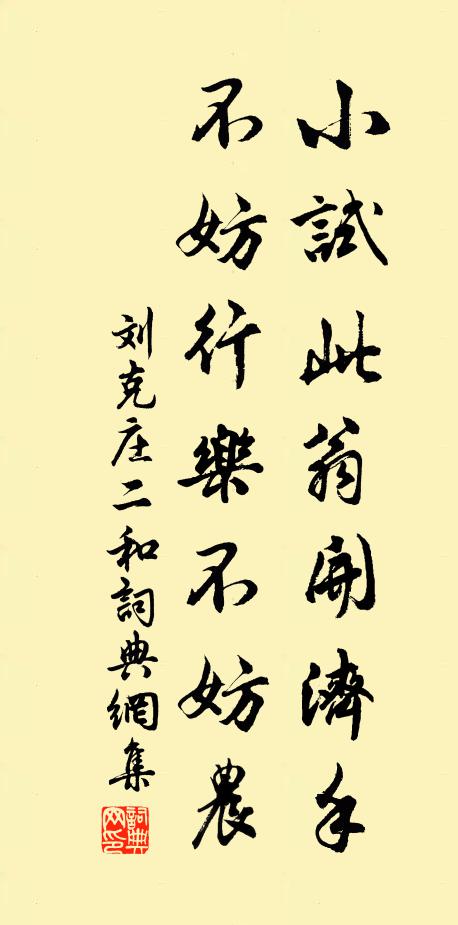 小試此翁開濟手
不妨行樂不妨農
刘克庄二和詞典網集
詞典網印